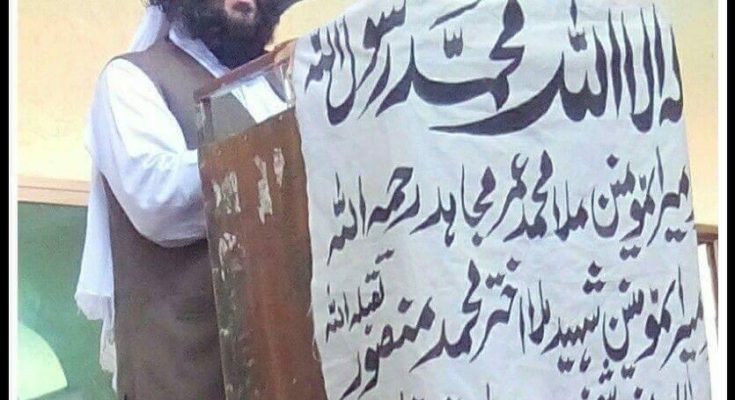 له الا الله محمد رسول الله
میرالمؤمنین ملا محمد عمر مجاهد رحمه الله
میرالمؤمنین شهید ملا اختر محمد منصور تقبله الله